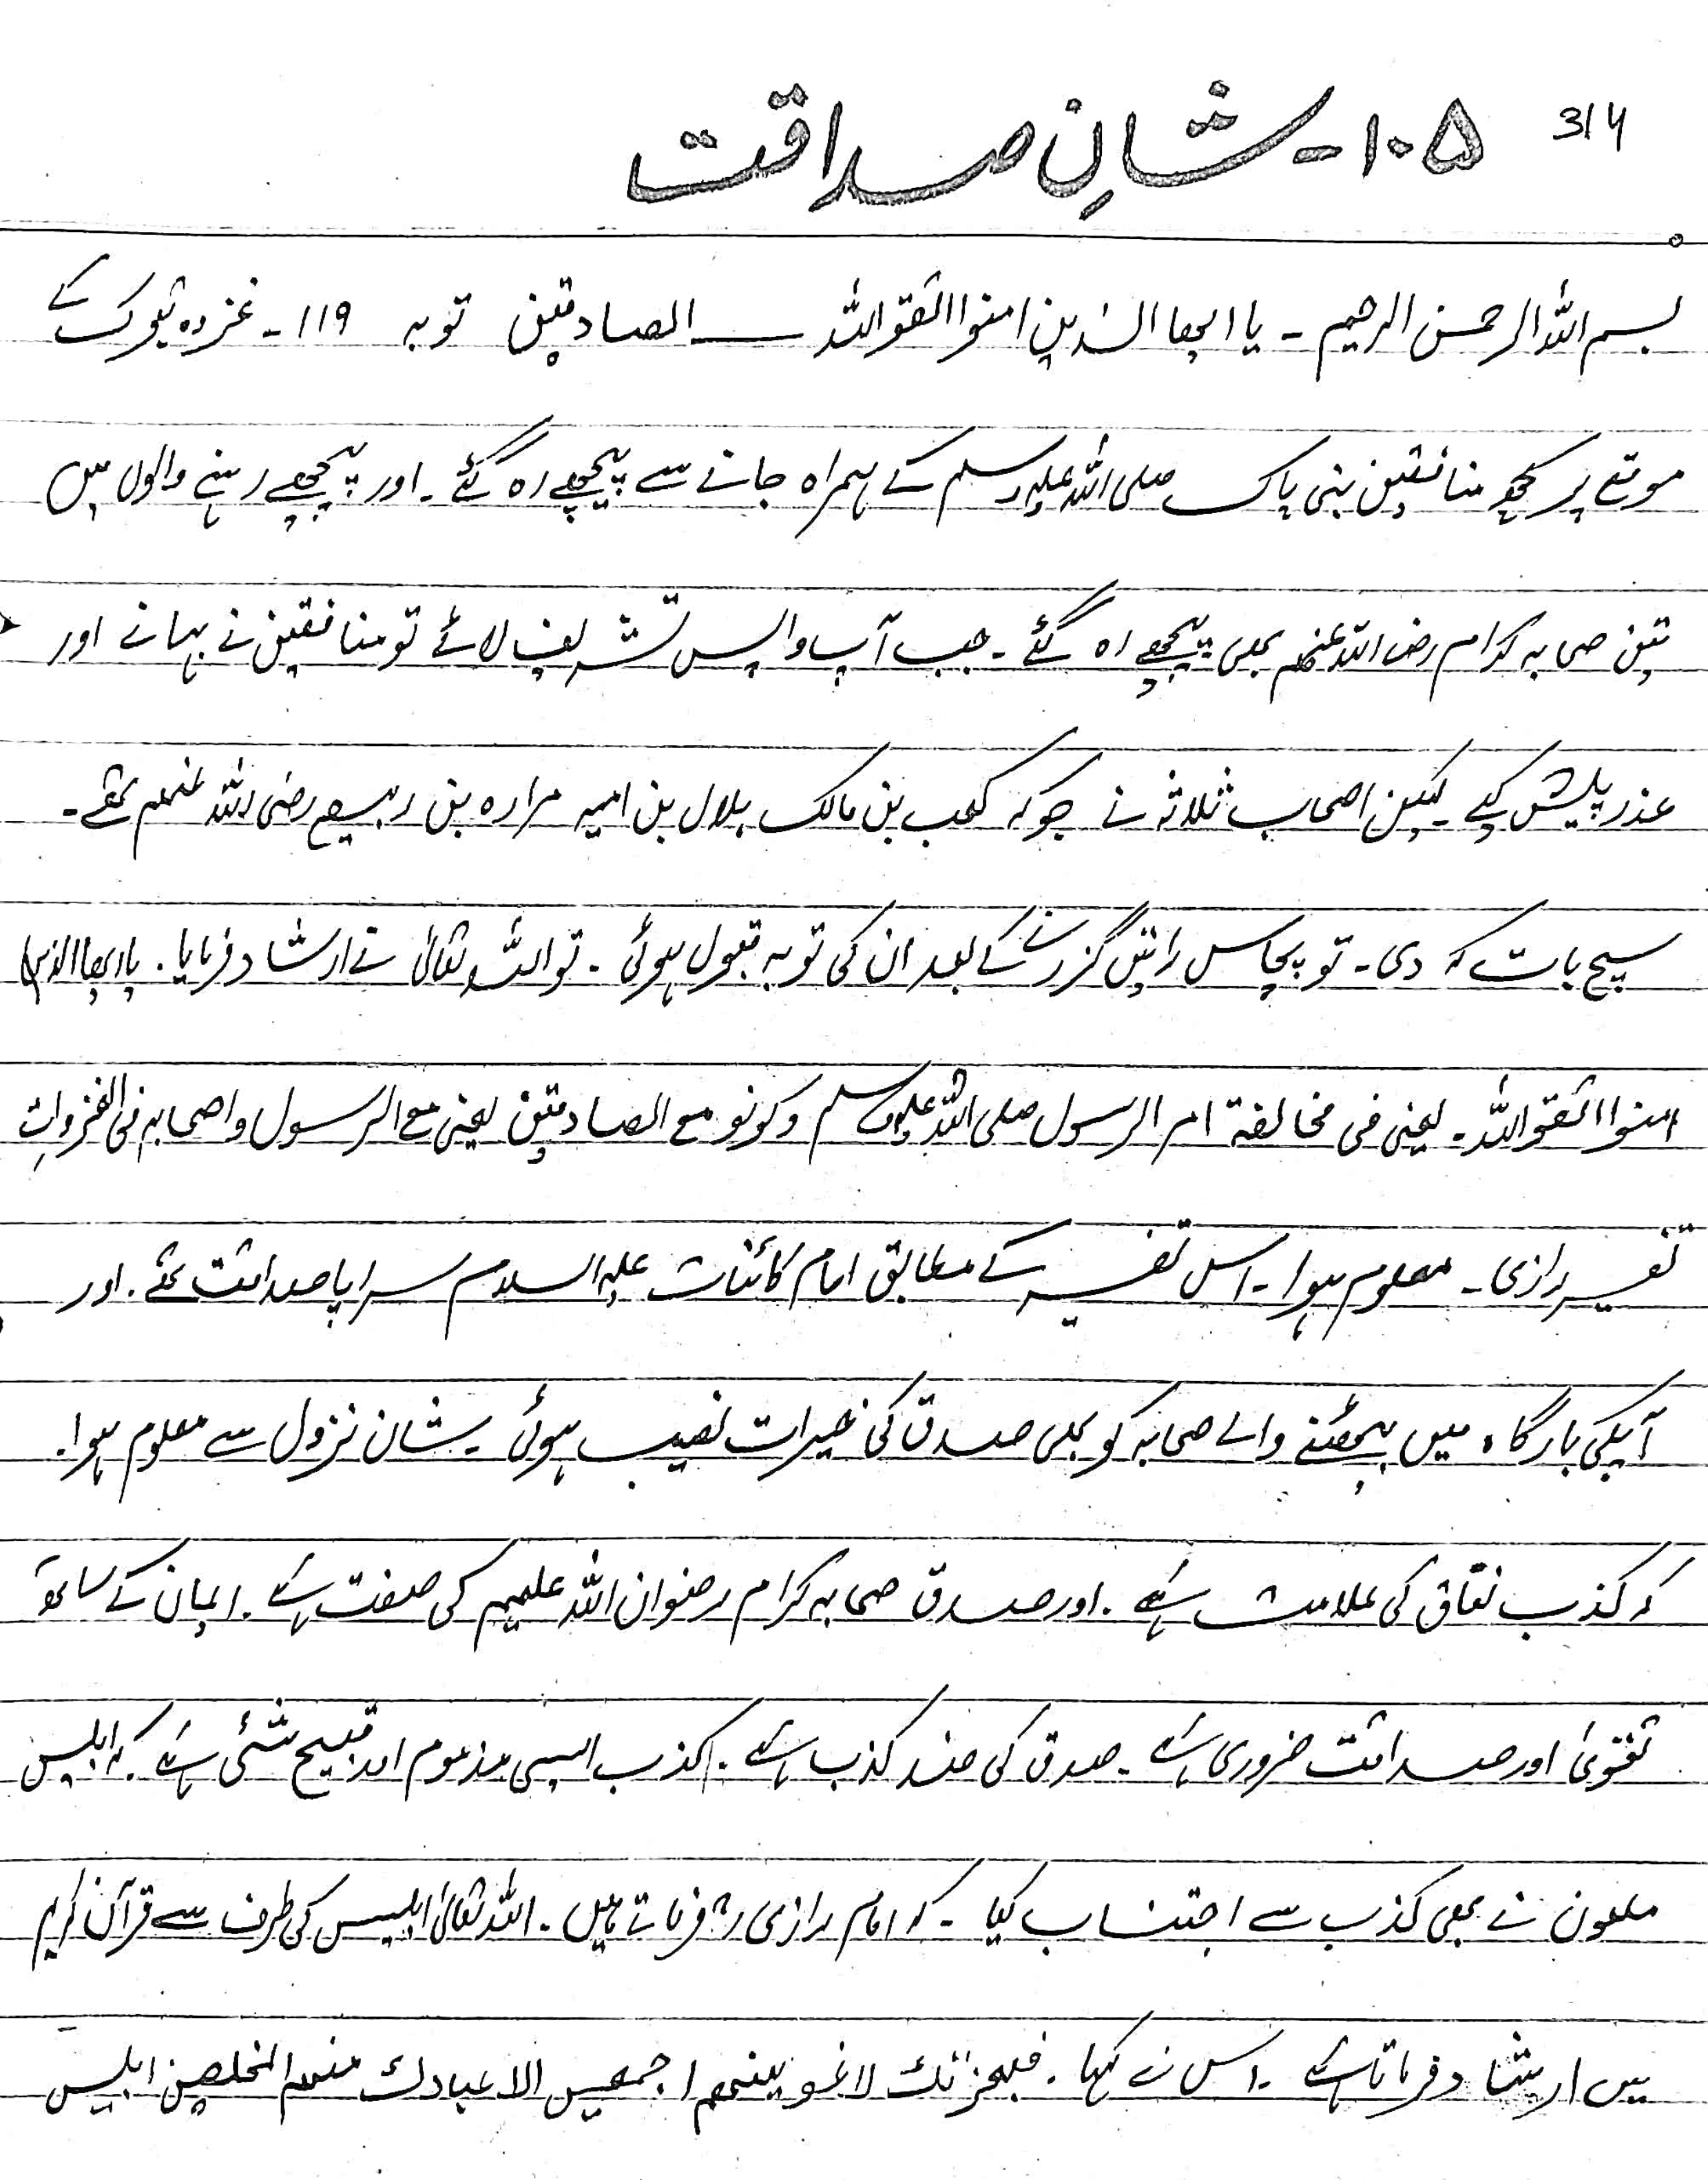 314
۱۰۵ - شانِ صداقت
بسم اللہ الرحمن الرحیم - یا ایھا الذین امنوا اتقو اللہ ـــــ الصادقین توبہ ۱۱۹ - غزوہ تبوک کے
موقع پر کچھ منافقین نبی پاک صلی اللہ علیہ وسلم کے ہمراہ جانے سے پیچھے رہ گئے - اور پیچھے رہنے والوں میں
تین صحابہ کرام رضی اللہ عنہم بھی پیچھے رہ گئے - جب آپ واپس تشریف لائے تو منافقین نے بہانے اور
عذر پیش کیے - لیکن اصحاب ثلاثہ نے جو کہ کعب بن مالک ہلال بن امیہ مرارہ بن ربیع رضی اللہ عنھم تھے -
سچ بات کہ دی - تو پچاس راتیں گزرنے کے بعد ان کی توبہ قبول ہوئی - تو اللہ تعالیٰ نے ارشاد فرمایا . یا ایھا الذین
امنوا اتقو اللہ - یعنی فی مخالفۃ امر الرسول صلی اللہ علیہ وسلم وکونو مع الصادقین یعنی مع الرسول واصحابہ فی الغزوات
تفسیر رازی - معلوم ہوا - اس تفسیر کے مطابق امام کائنات علیہ السلام سراپا صداقت تھے . اور
آپکی بارگاہ میں بیٹھنے والے صحابہ کو بھی صدق کی خیرات نصیب ہوئی - شان نزول سے معلوم ہوا -
کہ کذب نفاق کی علامت ہے . اور صدق صحابہ کرام رضوان اللہ علیہم کی صفت ہے . ایمان کے ساتھ
تقویٰ اور صداقت ضروری ہے - صدق کی ضد کذب ہے . کذب ایسی مذموم اور قبیح شئی ہے کہ ابلیس
ملعون نے بھی کذب سے اجتناب کیا - کہ امام رازی رح فرماتے ہیں - اللہ تعالیٰ ابلیس کی طرف سے قرآن کریم
میں ارشاد فرماتا ہے - اس نے کہا . فبعزتک لاغوینھم اجمعین الا عبادک منھم المخلصین ابلیس